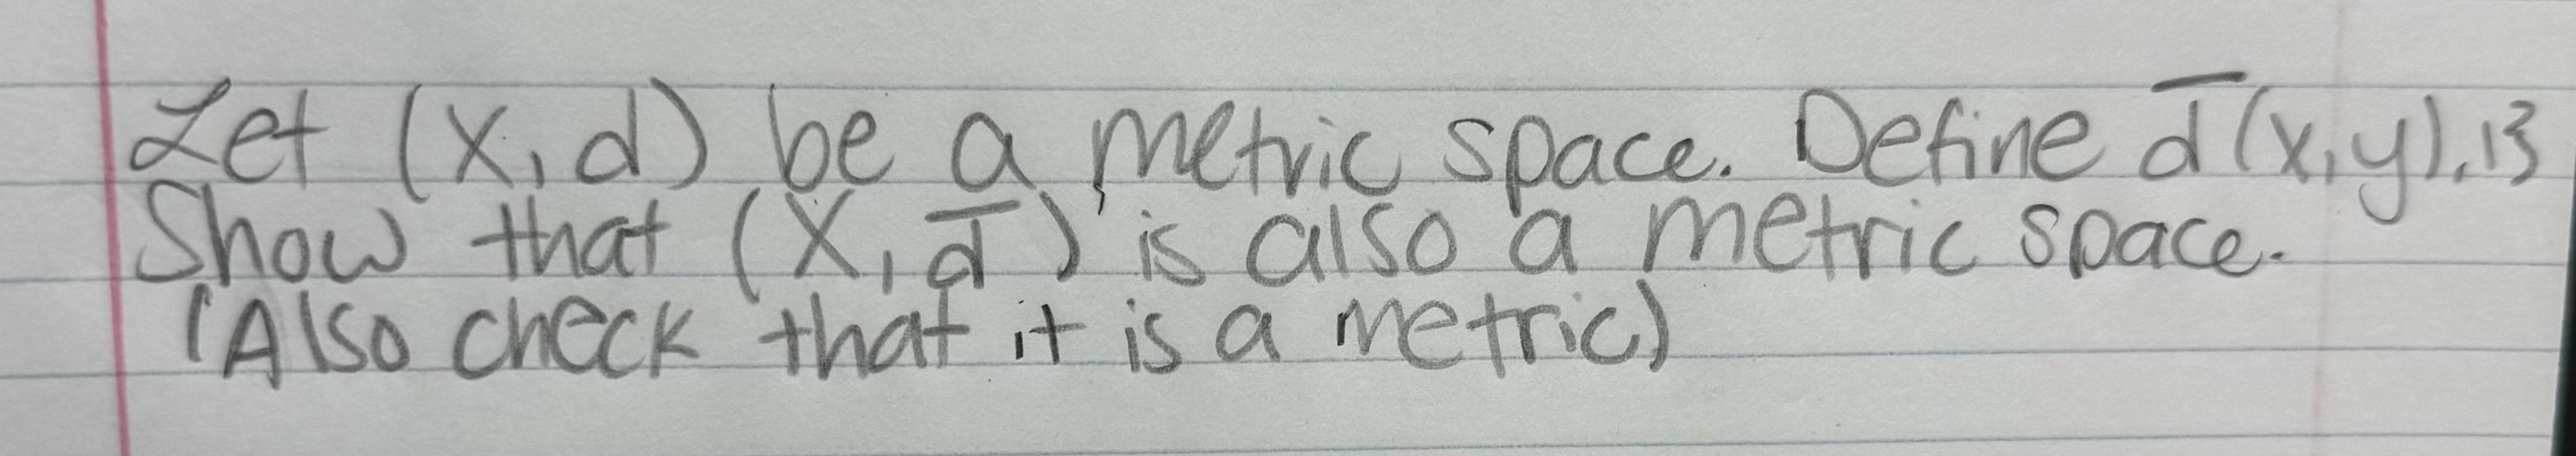 Let (X, d) be a metric space. Define d̅(x, y), 1}
Show that (X, d̅) is also a metric space.
(Also check that it is a metric)